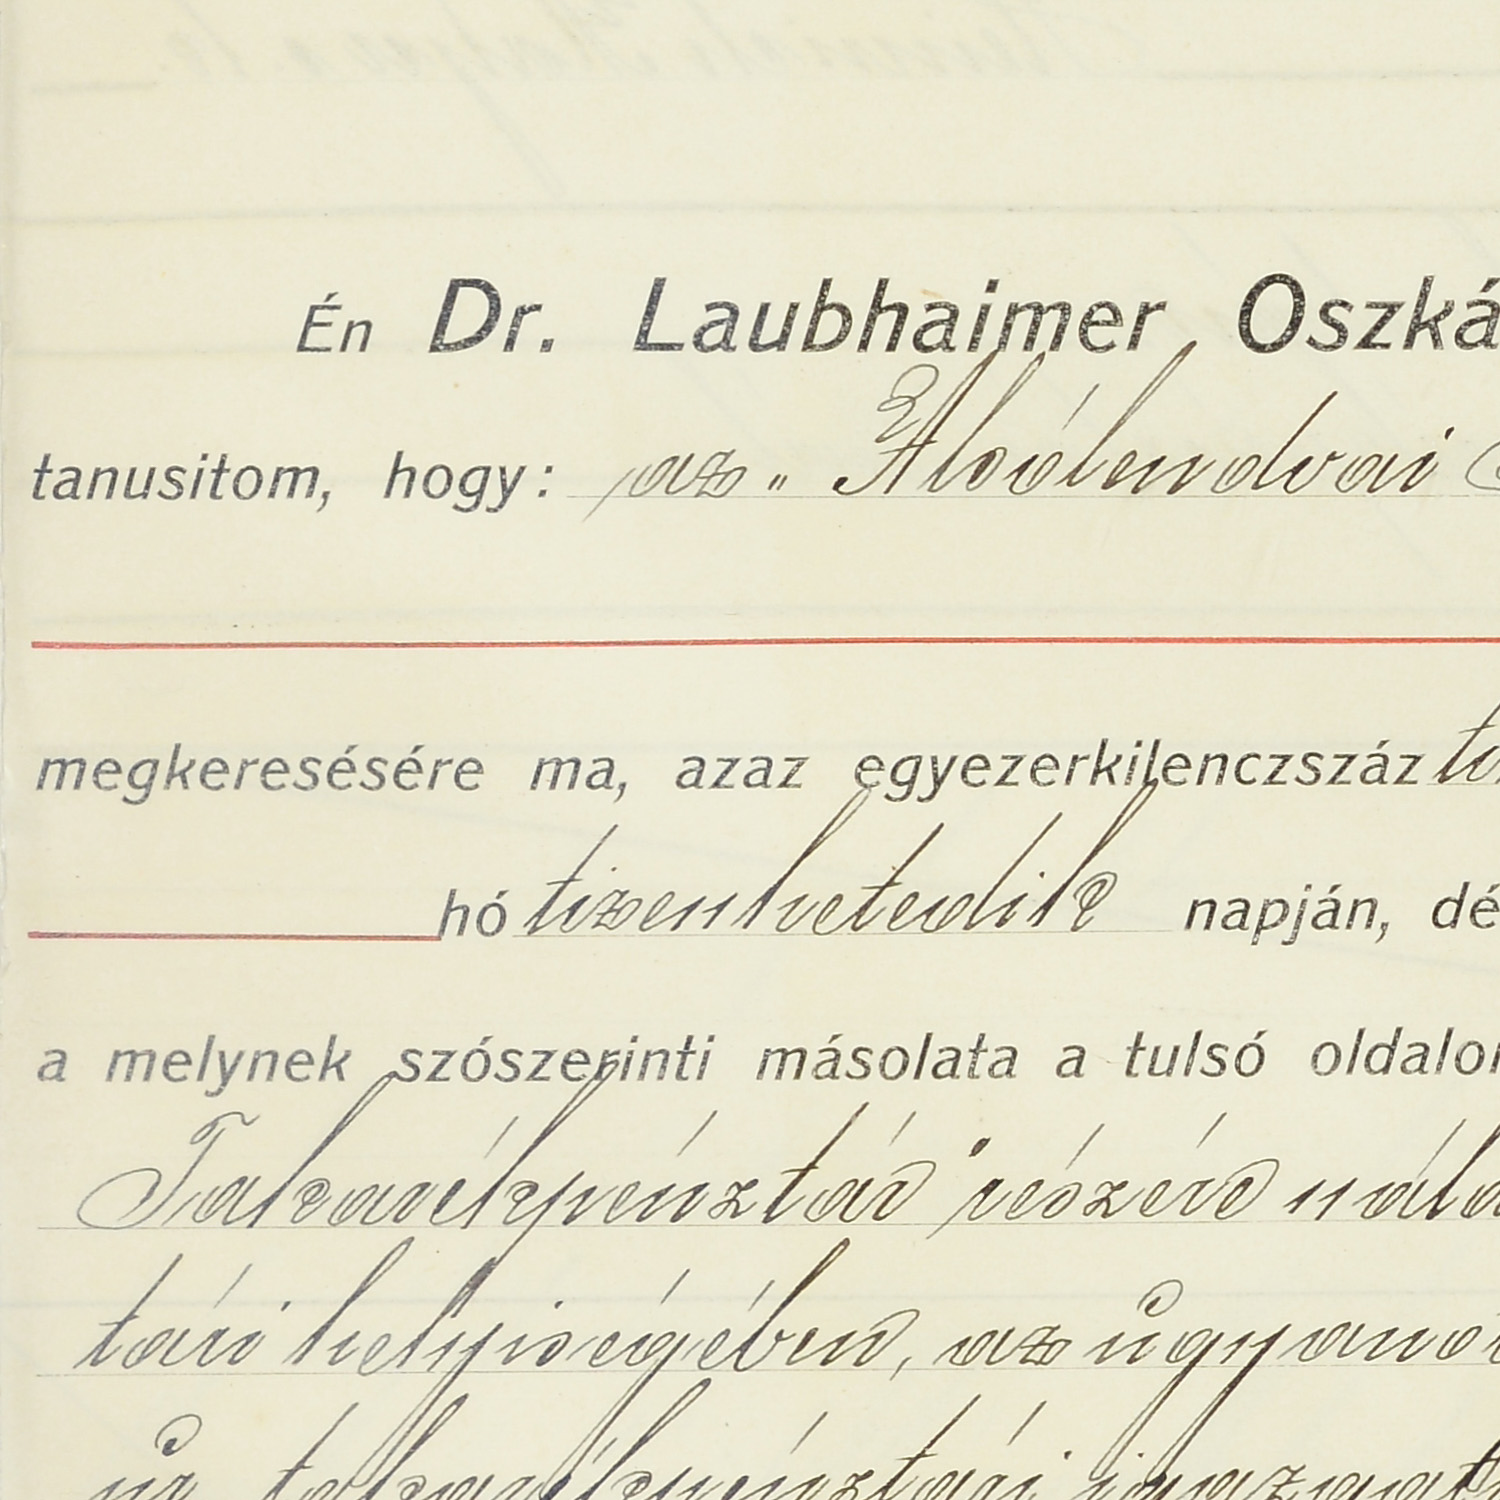 Én Dr. Laubhaimer Oszká
tanusitom, hogy: az „Alsólendvai
megkeresésére ma, azaz egyezerkilenczszáz ti
hó tizenhetedik napján, dé
a melynek szószerinti másolata a tulsó oldalon
Takarékpénztár" részére nála
tári helyiségében, az ugyanot
úr takarékpénztári igazgat